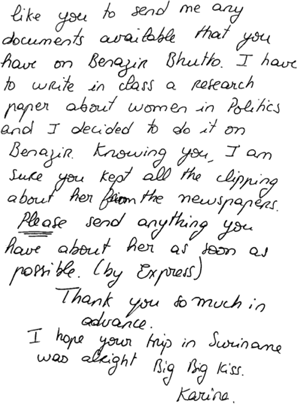 like you to send me any
documents available that you
have on Benazir Bhutto. I have
to write in class a research
paper about women in Politics
and I decided to do it on
Benazir. Knowing you, I am
sure you kept all the clipping
about her from the newspapers.
Please send anything you
have about her as soon as
possible. (by Express)
Thank you so much in
advance.
I hope your trip in Suriname
was alright Big Big Kiss.
Karine.